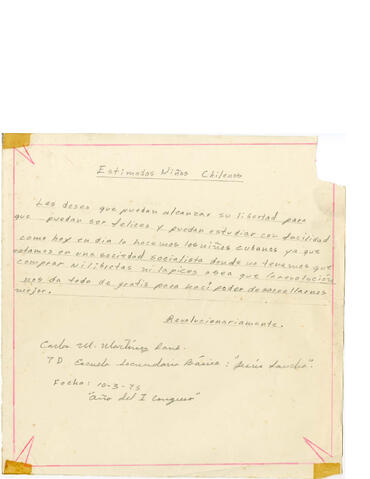 Estimados Niños Chilenos
Les deseo que puedan alcanzar su libertad para
que puedan ser felices y puedan estudiar con facilidad
como hoy en dia lo hacemos los niños cubanos ya que
estamos en una sociedad socialista donde no tenemos que
comprar ni libretas ni lapices o sea que la revolución
nos da todo de gratis para haci poder desarrollarnos
mejor.
Revolucionariamente.
Carlos M. Martínez
7D Escuela Secundaria Básica: "Jesús
Fecha: 10-3-75
"Año del I Congreso"